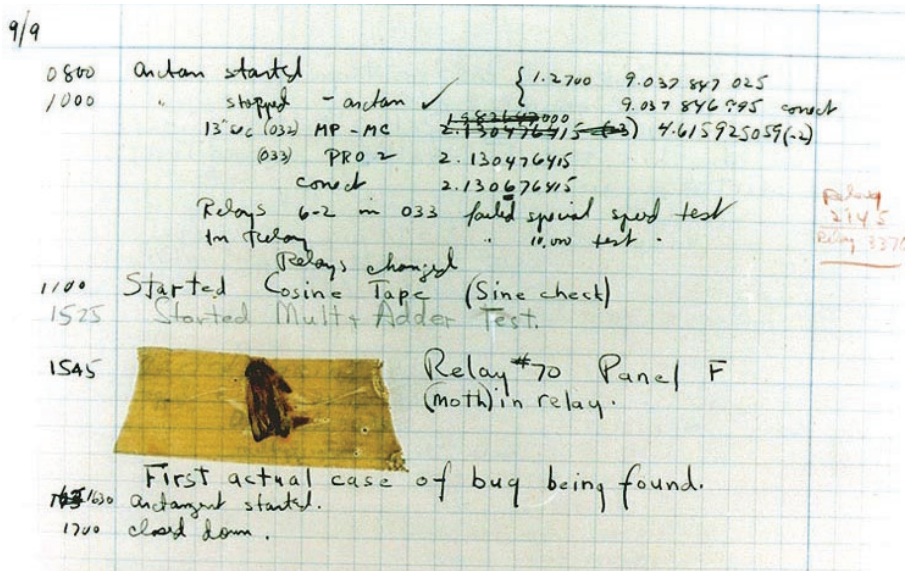 9/9
0800 antan started { 1.2700 9.037 847 025
1000 " stopped - antan ✓ 9.037 846 995 conect
13"uc (032) MP - MC 2.130476415 (-3) 4.615925059(-2)
(033) PRO 2 2.130476415
conect 2.130676415
Relays 6-2 in 033 failed special speed test
In Relay " 10,000 test .
Relays changed
Relay
2145
Relay 3370
1100 Started Cosine Tape (Sine check)
1525 Started Mult + Adder Test.
1545 Relay #70 Panel F
(moth) in relay.
First actual case of bug being found.
1630 antangent started.
1700 closed down.